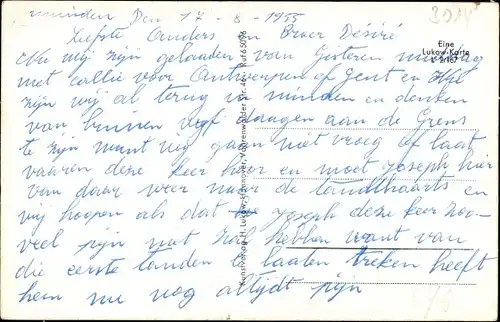 minden Den 17-8-1955
Liefste Ouders en Broer Désiré
Nu wij zijn gelaaden van Gisteren middag
met callie voor Antwerpen of Gent en
zijn wij al terug in minden en denken
van binnen vijf daagen aan de Grens
te zijn want wij gaan niet vroeg of laat
vaaren deze keer hoor en moet Joseph hier
van daar weer naar de tandhaarts en
wij hoopen als dat Joseph deze keer zoo
veel pijn niet zal hebben want van
die eerste tanden te laaten treken heeft
hem nu nog altijdt pijn
3D14
Eine
Lukow-Karte
Kunstverlag H. Lukow, Hannover, Vahrenwalder Str. 44, Ruf 65096